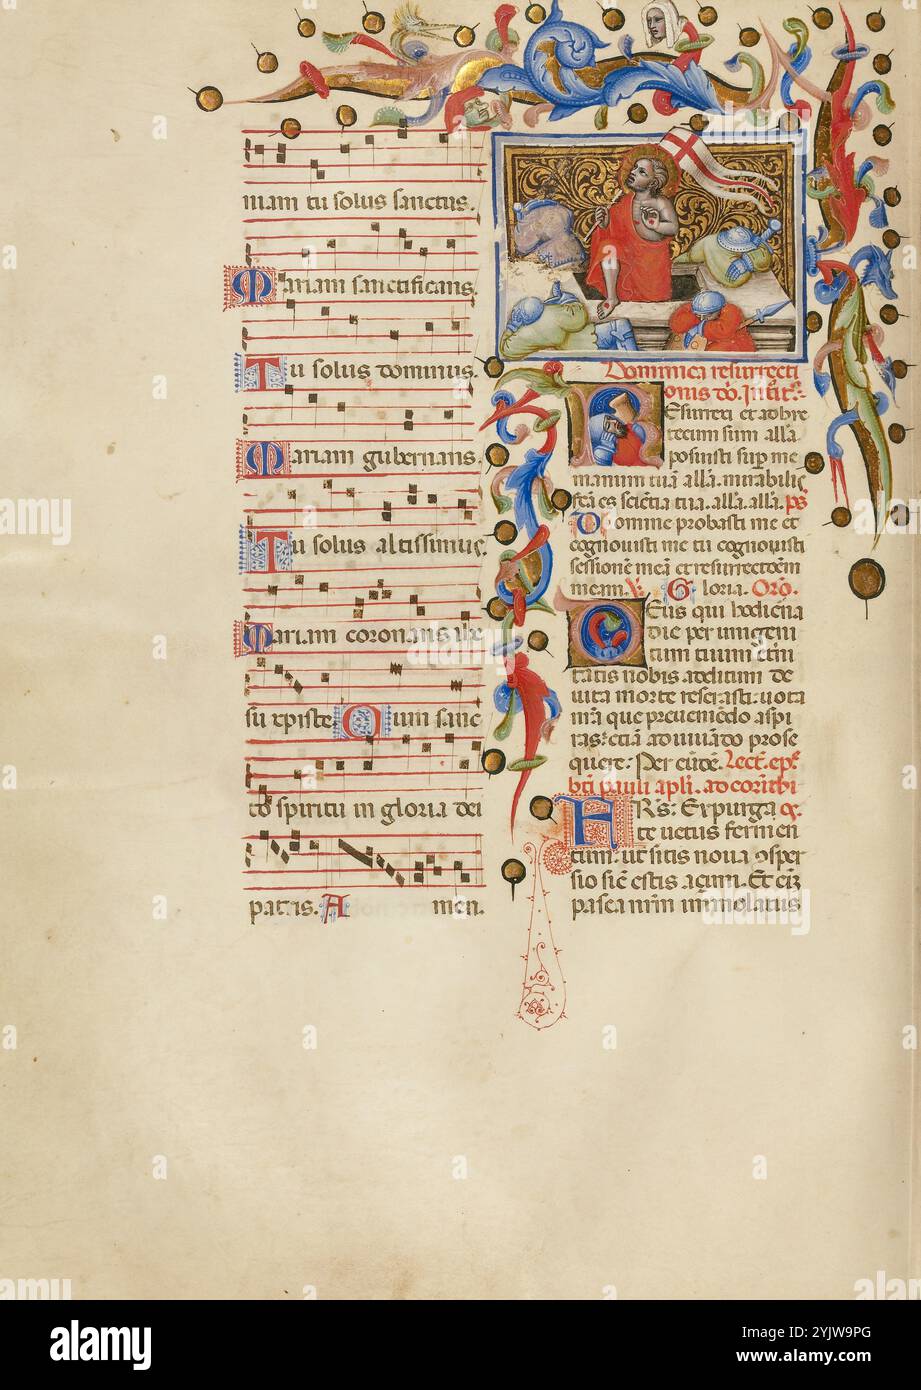 niam tu solus sanctus.
Mariam sanctificans
Tu solus dominus.
Mariam gubernans.
Tu solus altissimus.
Mariam coronans ihe
su xpiste Cum sanc
to spiritu in gloria dei
patris. A men.
Dominica resurrecti
onis
Resurrexi et adhuc
tecum sum alla.
posuisti sup me
manum tuā alla. mirabilis
scā es sciētia tua. alla. alla. ps
Domine probasti me et
cognovisti me tu cognovisti
sessionē meā et resurrectōem
meam. V. Gloria. Oro.
Deus qui hodierna
die per unigeni
tum tuum etni
tatis nobis aditum de
victa morte reserasti: vota
nrā que preveniēdo aspi
ras: etiā adiuvādo prose
quere: Per eūdē. Lect. epl'e
bti pauli apli. ad corinthi
FRs: Expurga os.
te vetus fermen
tum: ut sitis nova ɔsper
sio sic̄ estis açimi. Et eiz
pasca nrm immolatus
alamy
Image ID: 2YJW9PG
www.alamy.com